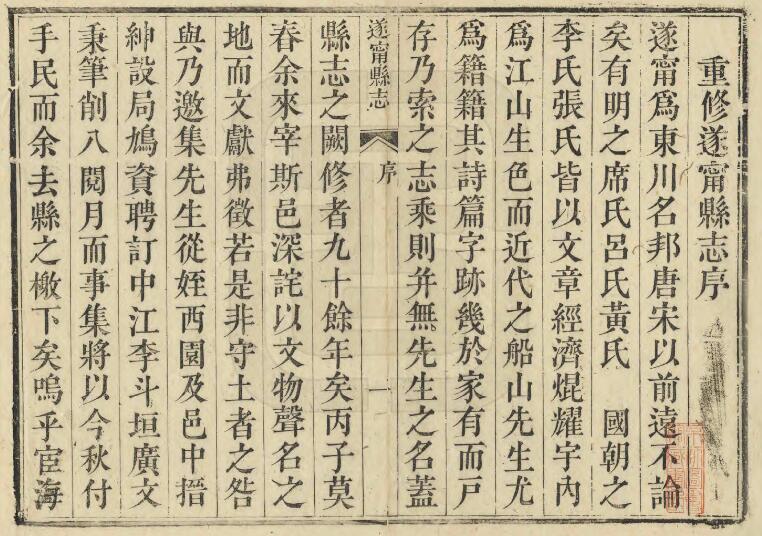 重修遂甯縣志序
遂甯爲東川名邦唐宋以前遠不論
矣有明之席氏呂氏黃氏　國朝之
李氏張氏皆以文章經濟焜耀宇內
爲江山生色而近代之船山先生尤
爲籍籍其詩篇字跡幾於家有而戶
存乃索之志乘則并無先生之名蓋
遂甯縣志　序　一
縣志之闕修者九十餘年矣丙子莫
春余來宰斯邑深詫以文物聲名之
地而文獻弗徵若是非守土者之咎
與乃邀集先生從姪西園及邑中搢
紳設局鳩資聘訂中江李斗垣廣文
秉筆削八閱月而事集將以今秋付
手民而余去縣之檄下矣嗚乎宦海